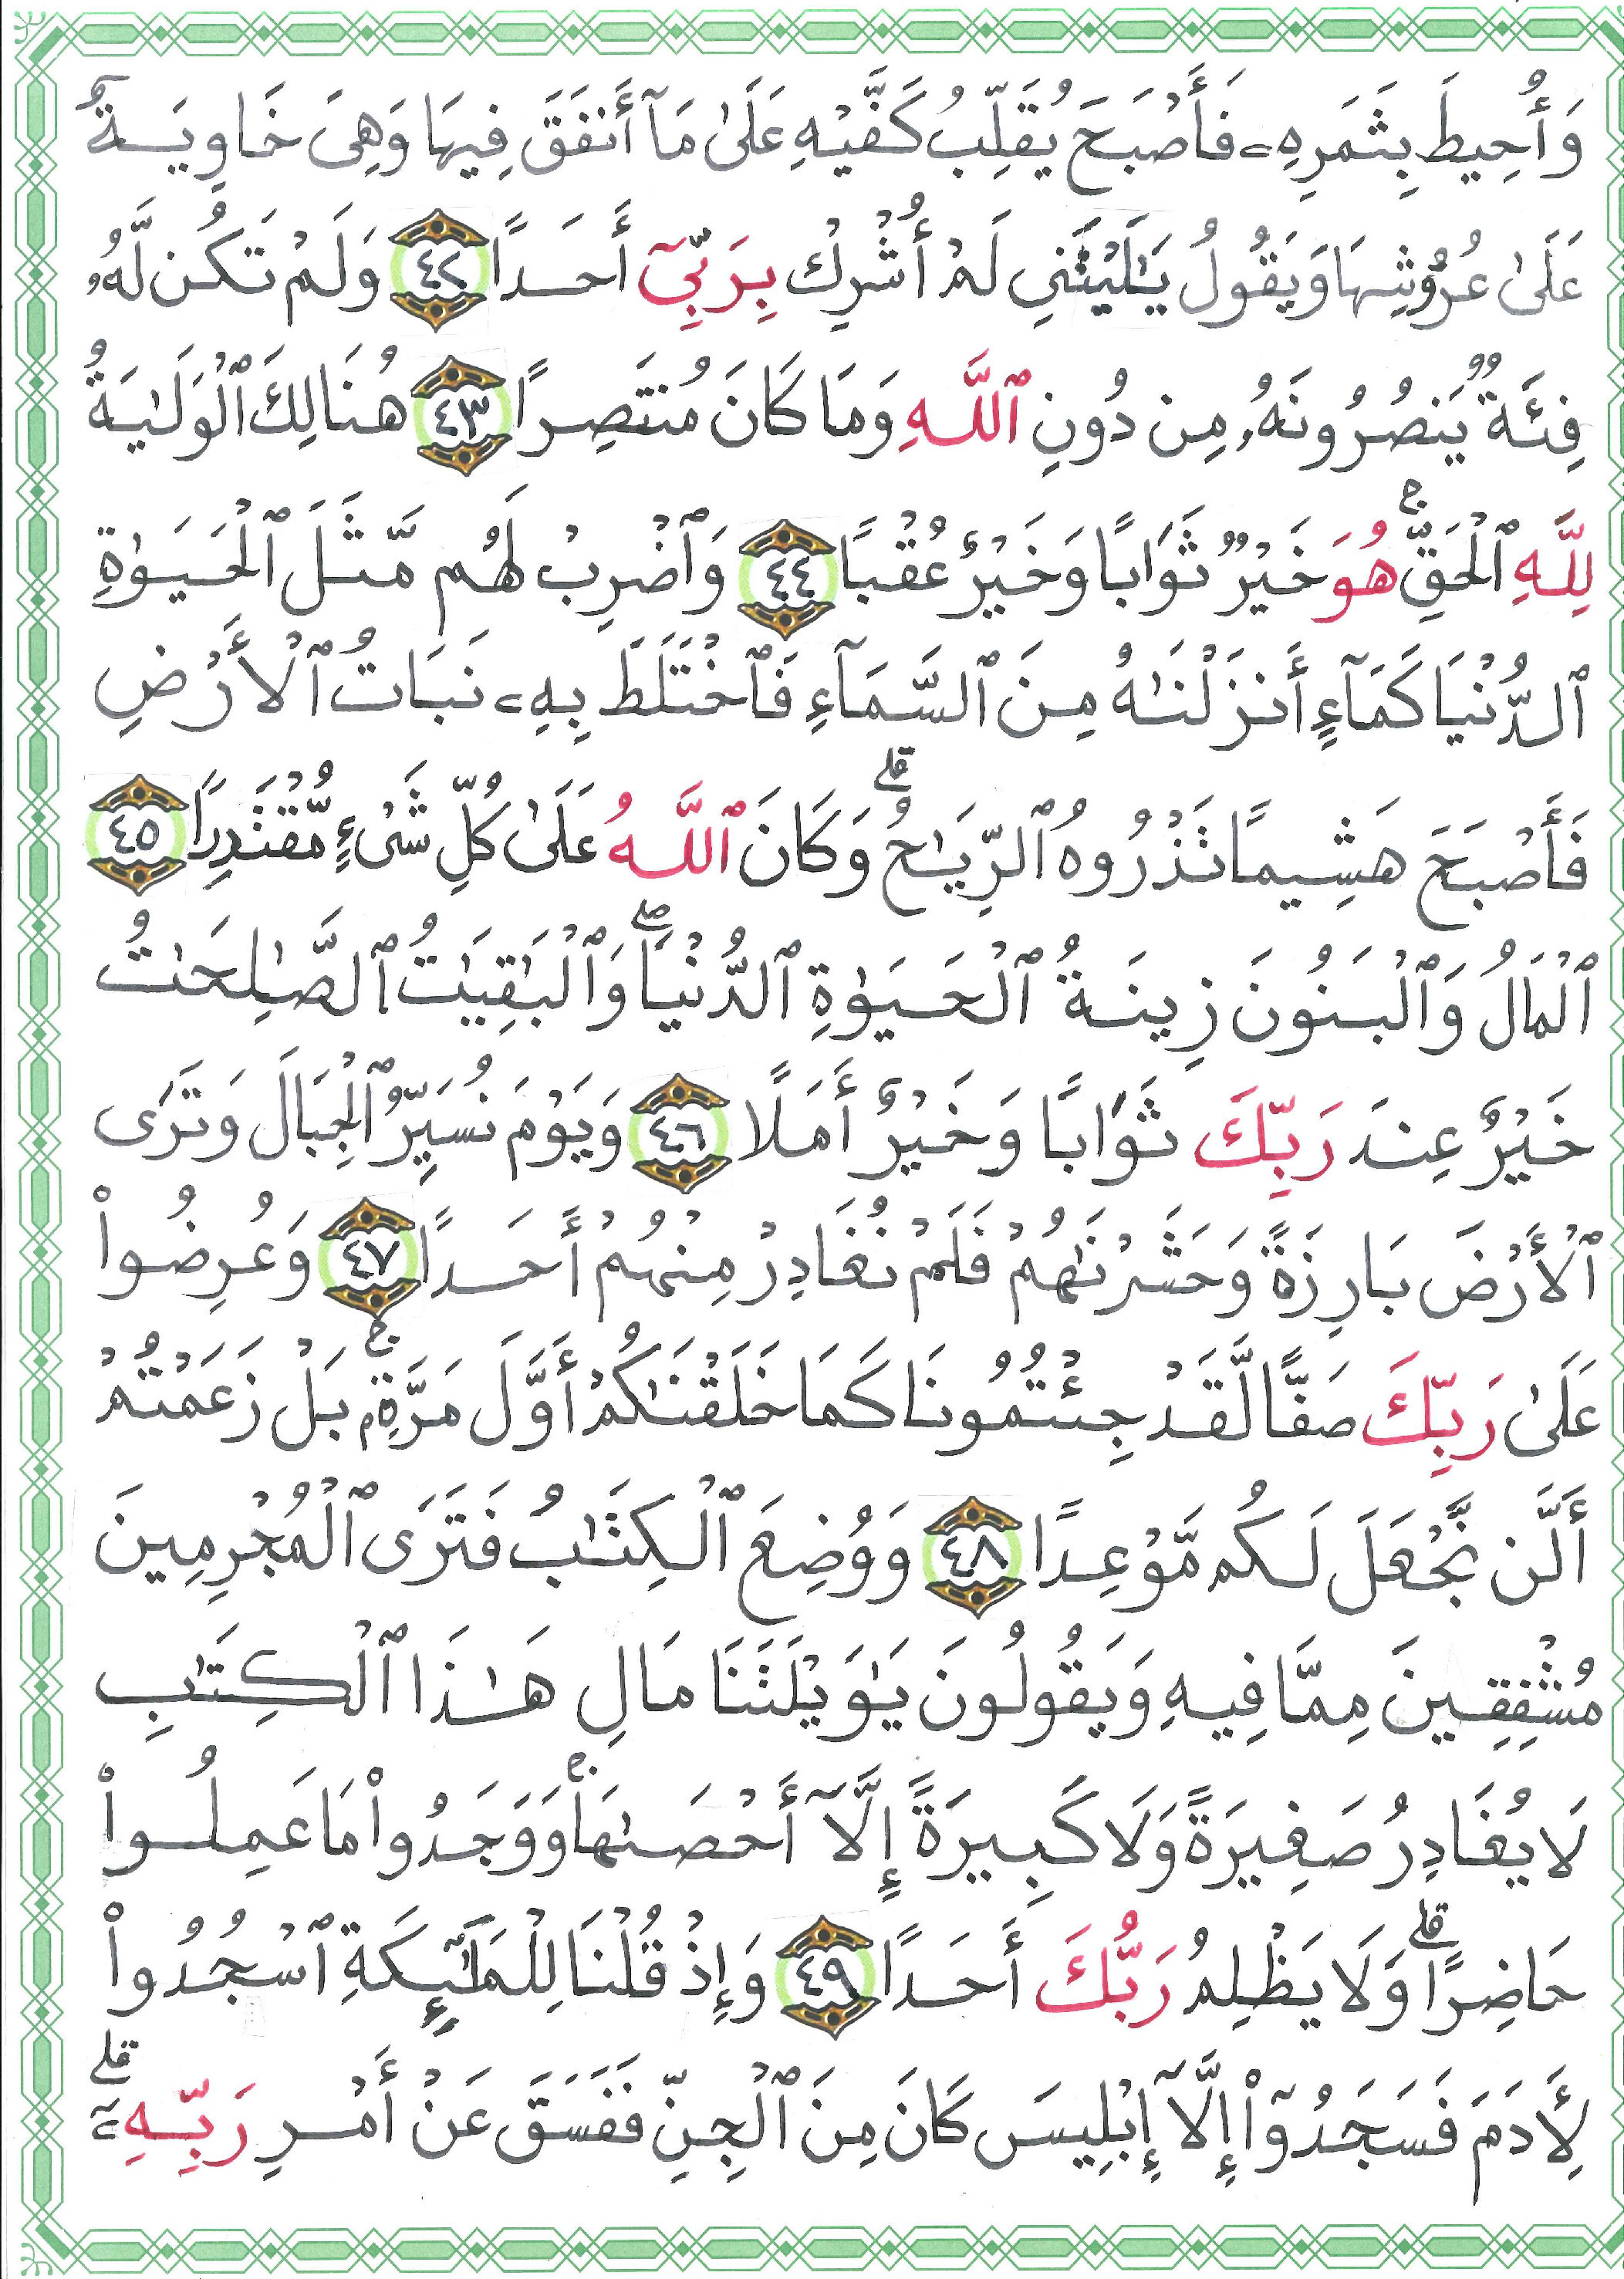 وَأُحِيطَ بِثَمَرِهِۦ فَأَصْبَحَ يُقَلِّبُ كَفَّيْهِ عَلَىٰ مَآ أَنفَقَ فِيهَا وَهِىَ خَاوِيَةٌ
عَلَىٰ عُرُوشِهَا وَيَقُولُ يَٰلَيْتَنِى لَمْ أُشْرِكْ بِرَبِّىٓ أَحَدًا ٤٢ وَلَمْ تَكُن لَّهُۥ
فِئَةٌ يَنصُرُونَهُۥ مِن دُونِ ٱللَّهِ وَمَا كَانَ مُنتَصِرًا ٤٣ هُنَالِكَ ٱلْوَلَٰيَةُ
لِلَّهِ ٱلْحَقِّ ۚ هُوَ خَيْرٌ ثَوَابًا وَخَيْرٌ عُقْبًا ٤٤ وَٱضْرِبْ لَهُم مَّثَلَ ٱلْحَيَوٰةِ
ٱلدُّنْيَا كَمَآءٍ أَنزَلْنَٰهُ مِنَ ٱلسَّمَآءِ فَٱخْتَلَطَ بِهِۦ نَبَاتُ ٱلْأَرْضِ
فَأَصْبَحَ هَشِيمًا تَذْرُوهُ ٱلرِّيَٰحُ ۗ وَكَانَ ٱللَّهُ عَلَىٰ كُلِّ شَىْءٍ مُّقْتَدِرًا ٤٥
ٱلْمَالُ وَٱلْبَنُونَ زِينَةُ ٱلْحَيَوٰةِ ٱلدُّنْيَا ۖ وَٱلْبَٰقِيَٰتُ ٱلصَّٰلِحَٰتُ
خَيْرٌ عِندَ رَبِّكَ ثَوَابًا وَخَيْرٌ أَمَلًا ٤٦ وَيَوْمَ نُسَيِّرُ ٱلْجِبَالَ وَتَرَى
ٱلْأَرْضَ بَارِزَةً وَحَشَرْنَٰهُمْ فَلَمْ نُغَادِرْ مِنْهُمْ أَحَدًا ٤٧ وَعُرِضُوا۟
عَلَىٰ رَبِّكَ صَفًّا لَّقَدْ جِئْتُمُونَا كَمَا خَلَقْنَٰكُمْ أَوَّلَ مَرَّةٍۭ ۚ بَلْ زَعَمْتُمْ
أَلَّن نَّجْعَلَ لَكُم مَّوْعِدًا ٤٨ وَوُضِعَ ٱلْكِتَٰبُ فَتَرَى ٱلْمُجْرِمِينَ
مُشْفِقِينَ مِمَّا فِيهِ وَيَقُولُونَ يَٰوَيْلَتَنَا مَالِ هَٰذَا ٱلْكِتَٰبِ
لَا يُغَادِرُ صَغِيرَةً وَلَا كَبِيرَةً إِلَّآ أَحْصَىٰهَا ۚ وَوَجَدُوا۟ مَا عَمِلُوا۟
حَاضِرًا ۗ وَلَا يَظْلِمُ رَبُّكَ أَحَدًا ٤٩ وَإِذْ قُلْنَا لِلْمَلَٰٓئِكَةِ ٱسْجُدُوا۟
لِأَدَمَ فَسَجَدُوٓا۟ إِلَّآ إِبْلِيسَ كَانَ مِنَ ٱلْجِنِّ فَفَسَقَ عَنْ أَمْرِ رَبِّهِۦٓ ۗ